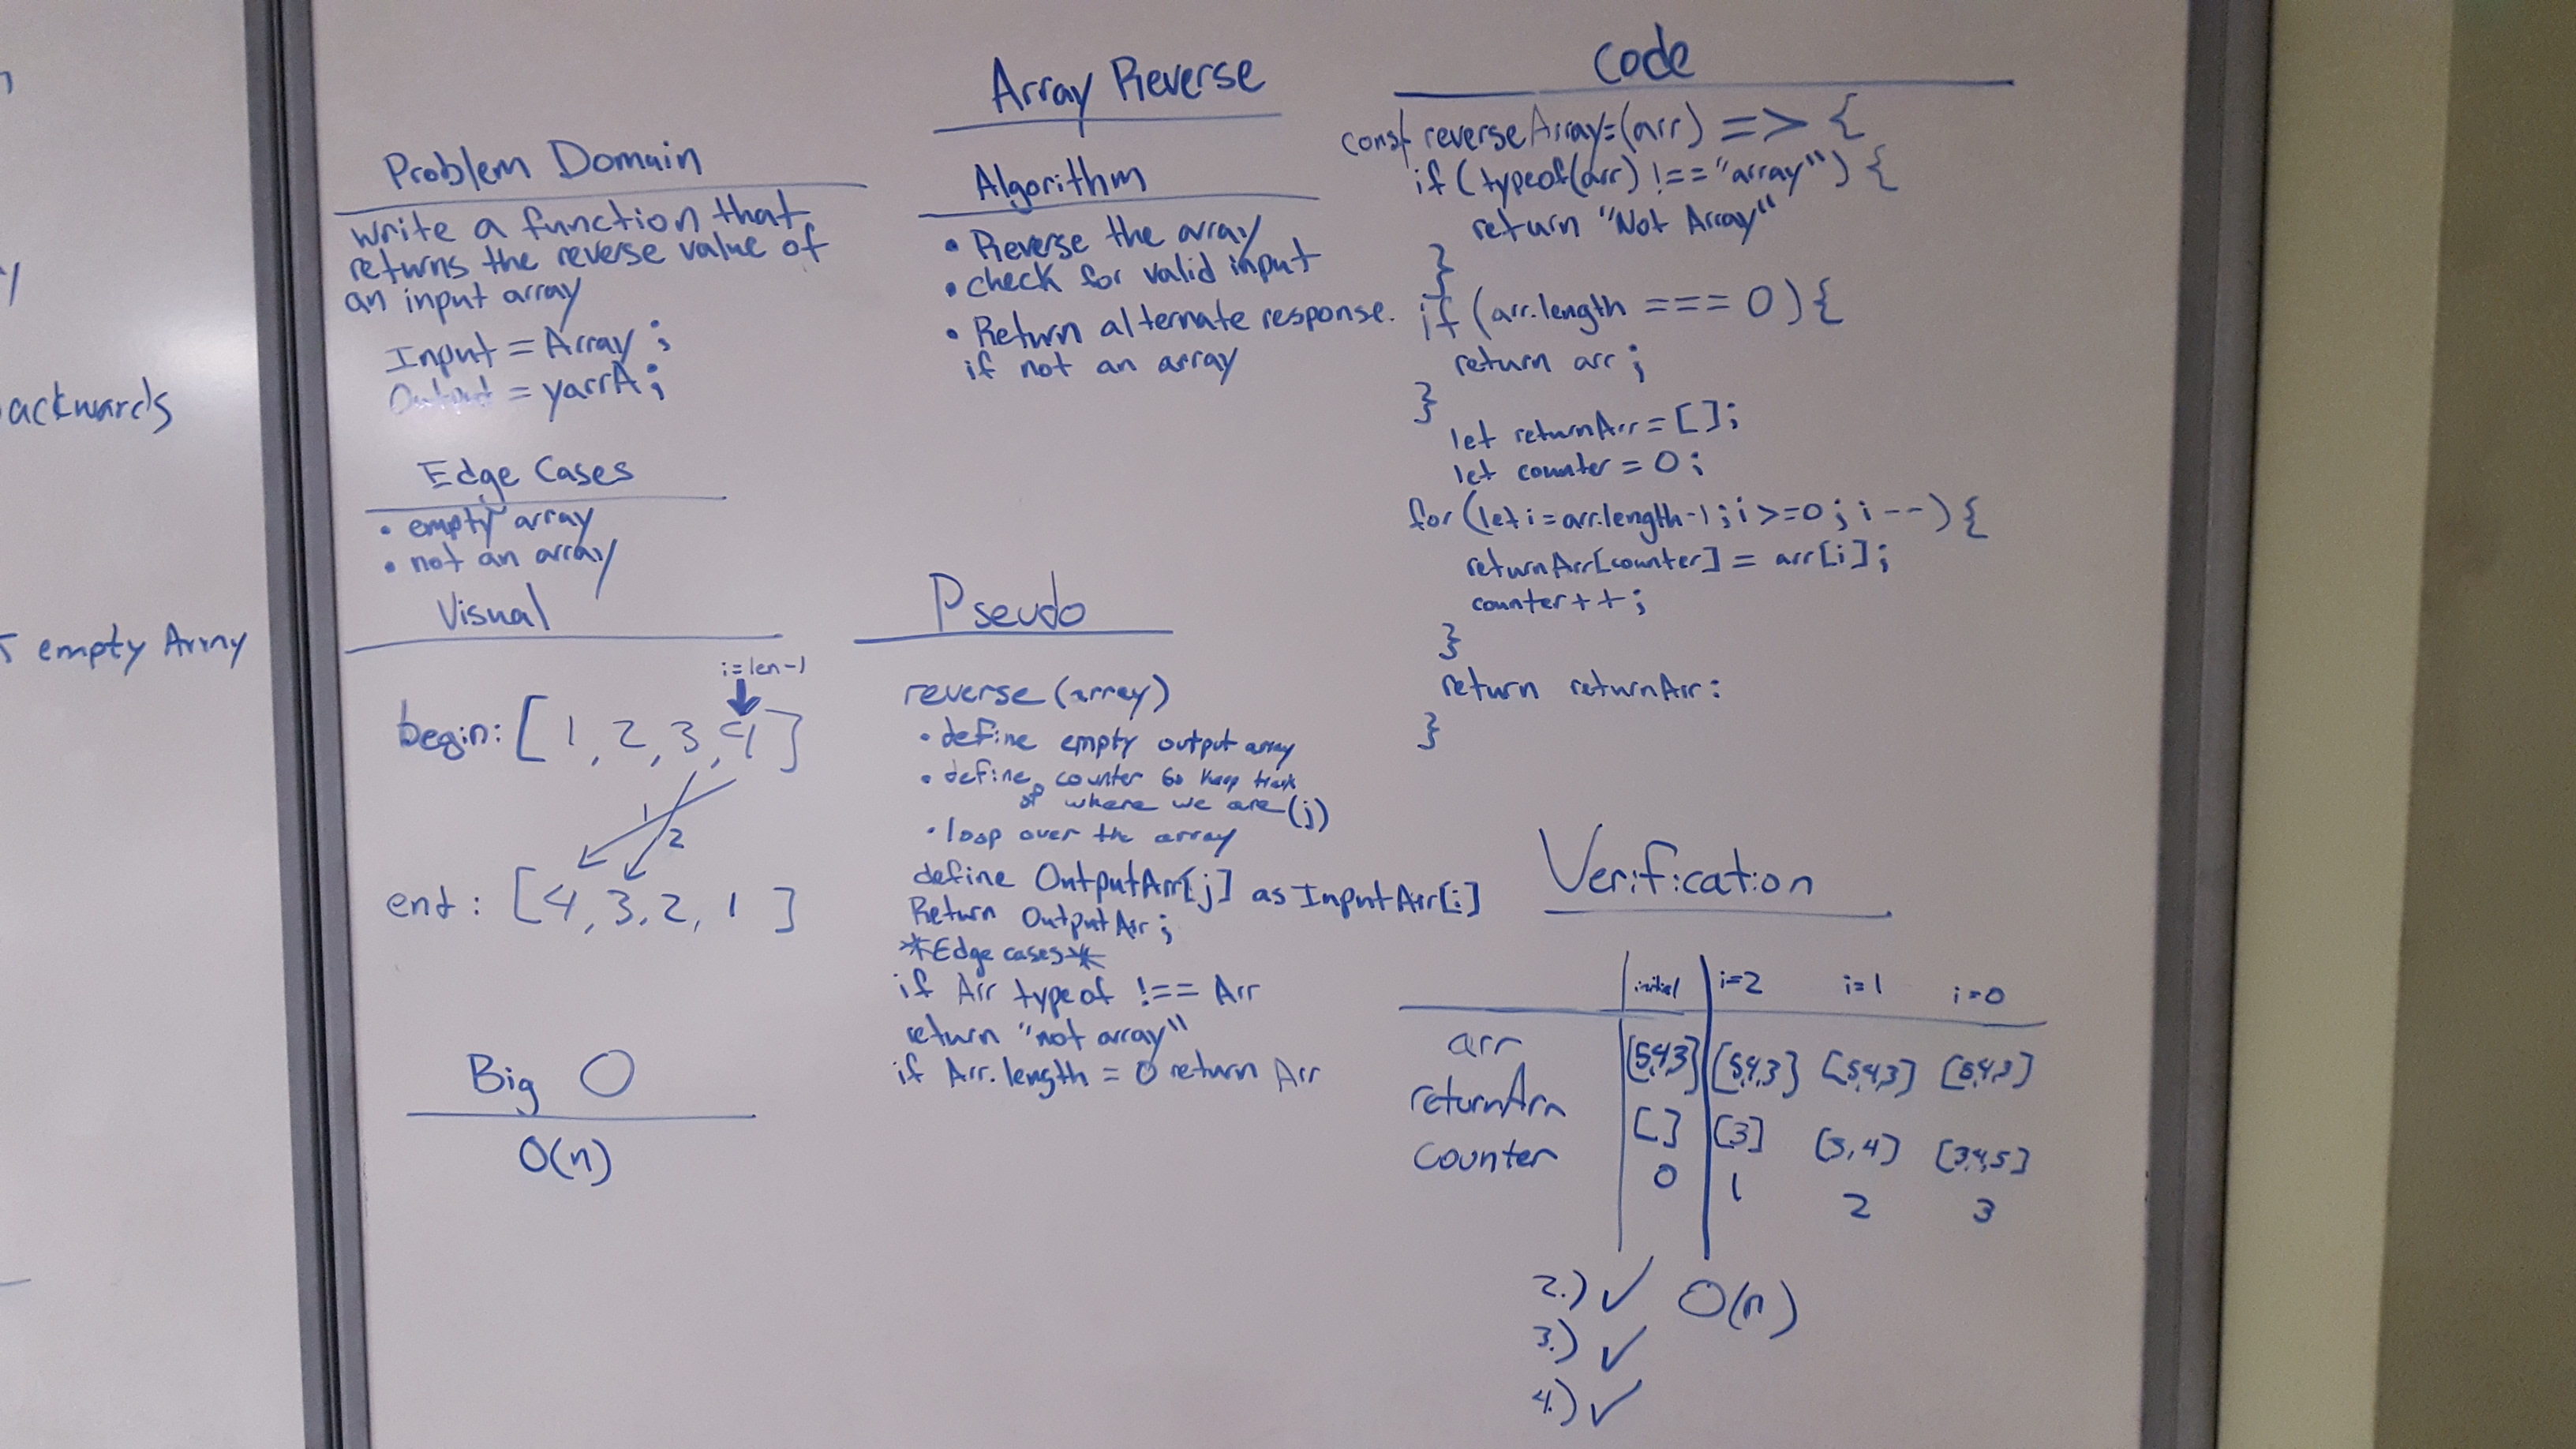 ackwards
empty Array
Array Reverse
Problem Domain
Write a function that
returns the reverse value of
an input array
Input = Array ;
Output = yarrA ;
Edge Cases
• empty array
• not an array
Visual
i=len-1
begin: [ 1, 2, 3, 4 ]
1
2
end : [ 4, 3, 2, 1 ]
Big O
O(n)
Algorithm
• Reverse the array
• check for valid input
• Return alternate response.
if not an array
Pseudo
reverse (array)
• define empty output array
• define counter to keep track
of where we are (j)
• loop over the array
define OutputArr[j] as InputArr[i]
Return OutputArr ;
*Edge cases*
if Arr typeof !== Arr
return "not array"
if Arr.length = 0 return Arr
Code
const reverseArray=(arr) => {
if (typeof(arr) !== "array") {
return "Not Array"
}
if (arr.length === 0 ) {
return arr ;
}
let returnArr = [ ];
let counter = 0 ;
for (let i = arr.length-1 ; i >=0 ; i --) {
returnArr[counter] = arr[i] ;
counter++ ;
}
return returnArr :
}
Verification
initial i=2 i=1 i=0
arr [5,4,3] [5,4,3] [5,4,3] [5,4,3]
returnArr [ ] [3] [3,4] [3,4,5]
counter 0 1 2 3
2.) ✓ O(n)
3.) ✓
4.) ✓